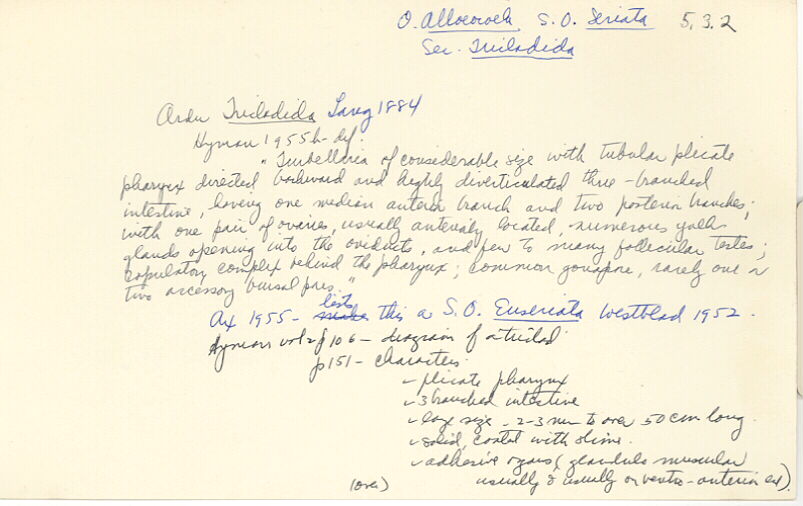 O. Alloeocoela S.O. Seriata 5.3.2
Sec. Tricladida
Order Tricladida Lang 1884
Hyman 1955b - def.
"Turbellaria of considerable size with tubular plicate
pharynx directed backward and highly diverticulated three-branched
intestine, having one median anterior branch and two posterior branches;
with one pair of ovaries, usually anteriorly located, numerous yolk
glands opening into the oviducts, and few to many follicular testes;
copulatory complex behind the pharynx; common gonopore, rarely one or
two accessory bursal pores."
lists
Ax 1955 - this a S.O. Euseriata Westblad 1952.
Hyman vol 2 p 106 - diagram of a triclad
p 151 - characters
- plicate pharynx
- 3 branched intestine
- size - 2-3 mm to over 50 cm long
- solid, coated with slime.
- adhesive organs (glandulo muscular
(over) usually & usually on ventro-anterior